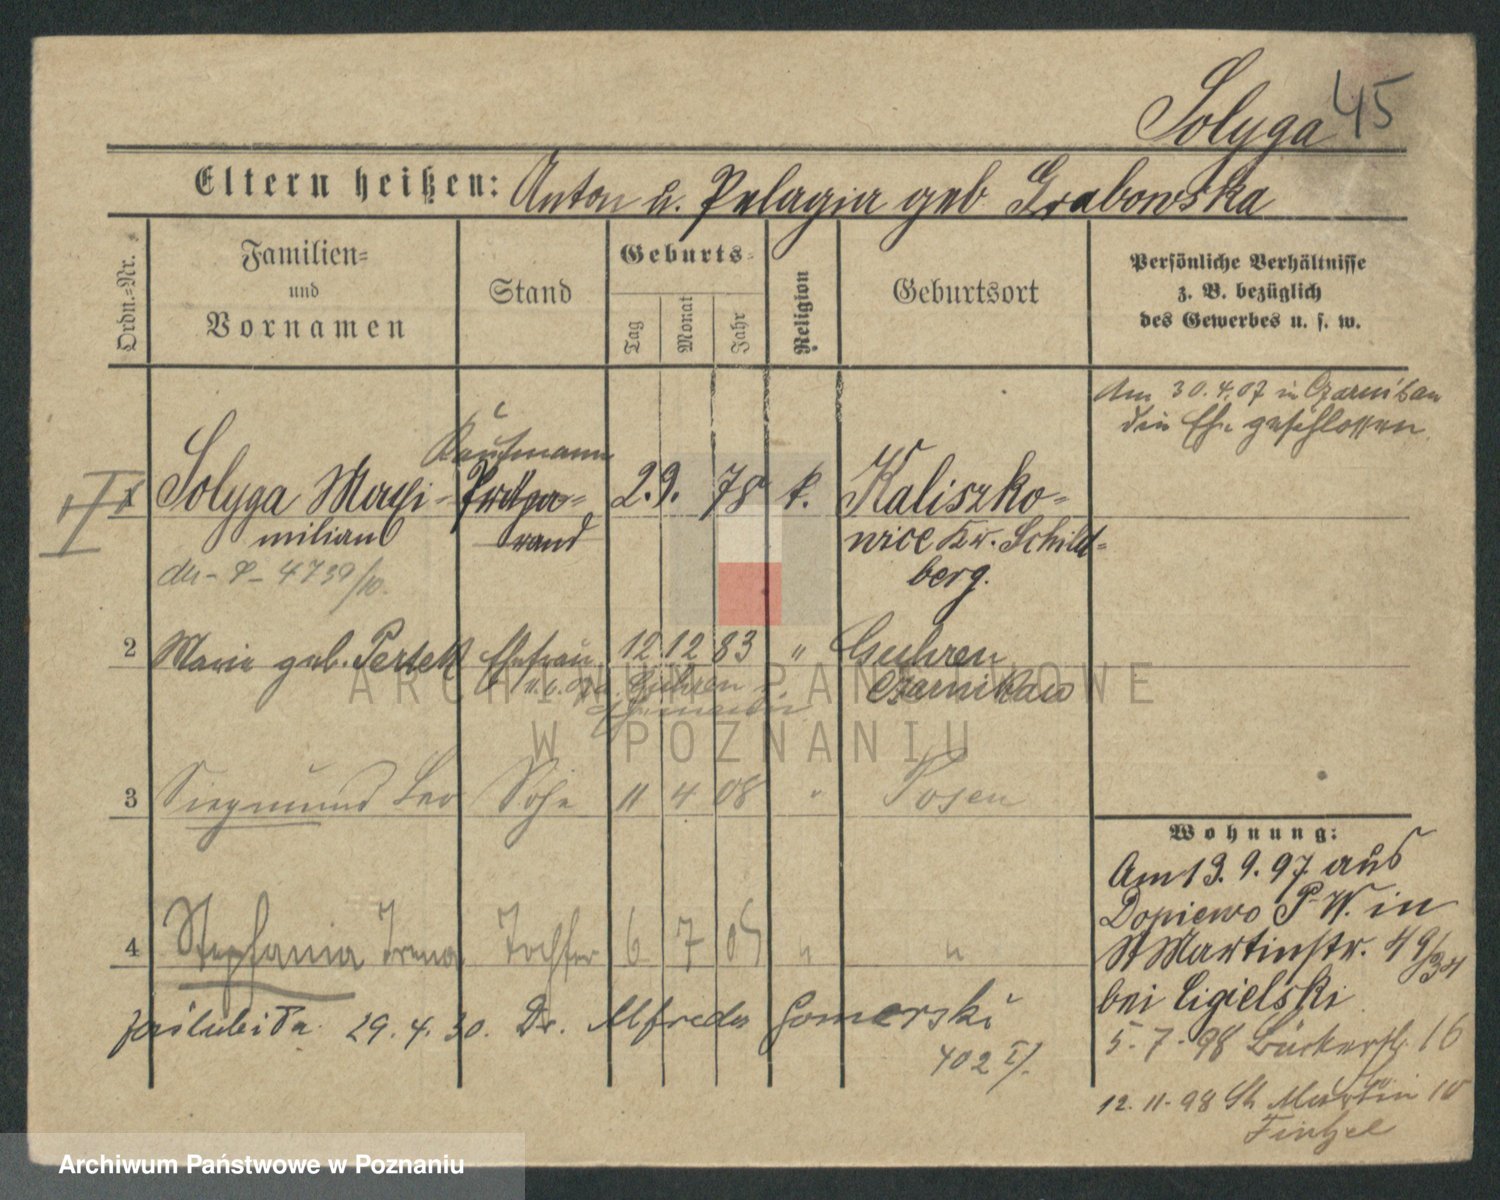 Solyga 45
Eltern heißen: Anton u. Pelagia geb Grabowska
Ordn.=Nr.
Familien=
und
Vornamen
Stand
Geburts=
Tag
Monat
Jahr
Religion
Geburtsort
Persönliche Verhältnisse
z. B. bezüglich
des Gewerbes u. s. w.
Am 30.4.07 in Czarnikau
die Ehe geschlossen.
Kaufmann
1 Solyga Maxi- Präpa= 2. 9. 78 k. Kaliszko=
milian rand wice Kr. Schild=
berg.
4739/10.
2 Marie geb. Pertek Ehefrau 12 12 83 " Guhren
Czarnikau
3 Siegmund Leo Sohn 11 4 08 " Posen
Wohnung:
Am 13. 9. 97 aus
Dopiewo P. W. in
St Martinstr. 49/34
bei Cigielski
4 Stephania Irena Tochter 6 7 09 " "
zaślubiła 29. 4. 30. Dr. Alfreda Gomerski
402 I/.
5. 7. 98 Bäckerstr. 16
12. 11. 98 St Martin 10
ARCHIWUM PAŃSTWOWE
W POZNANIU
Archiwum Państwowe w Poznaniu